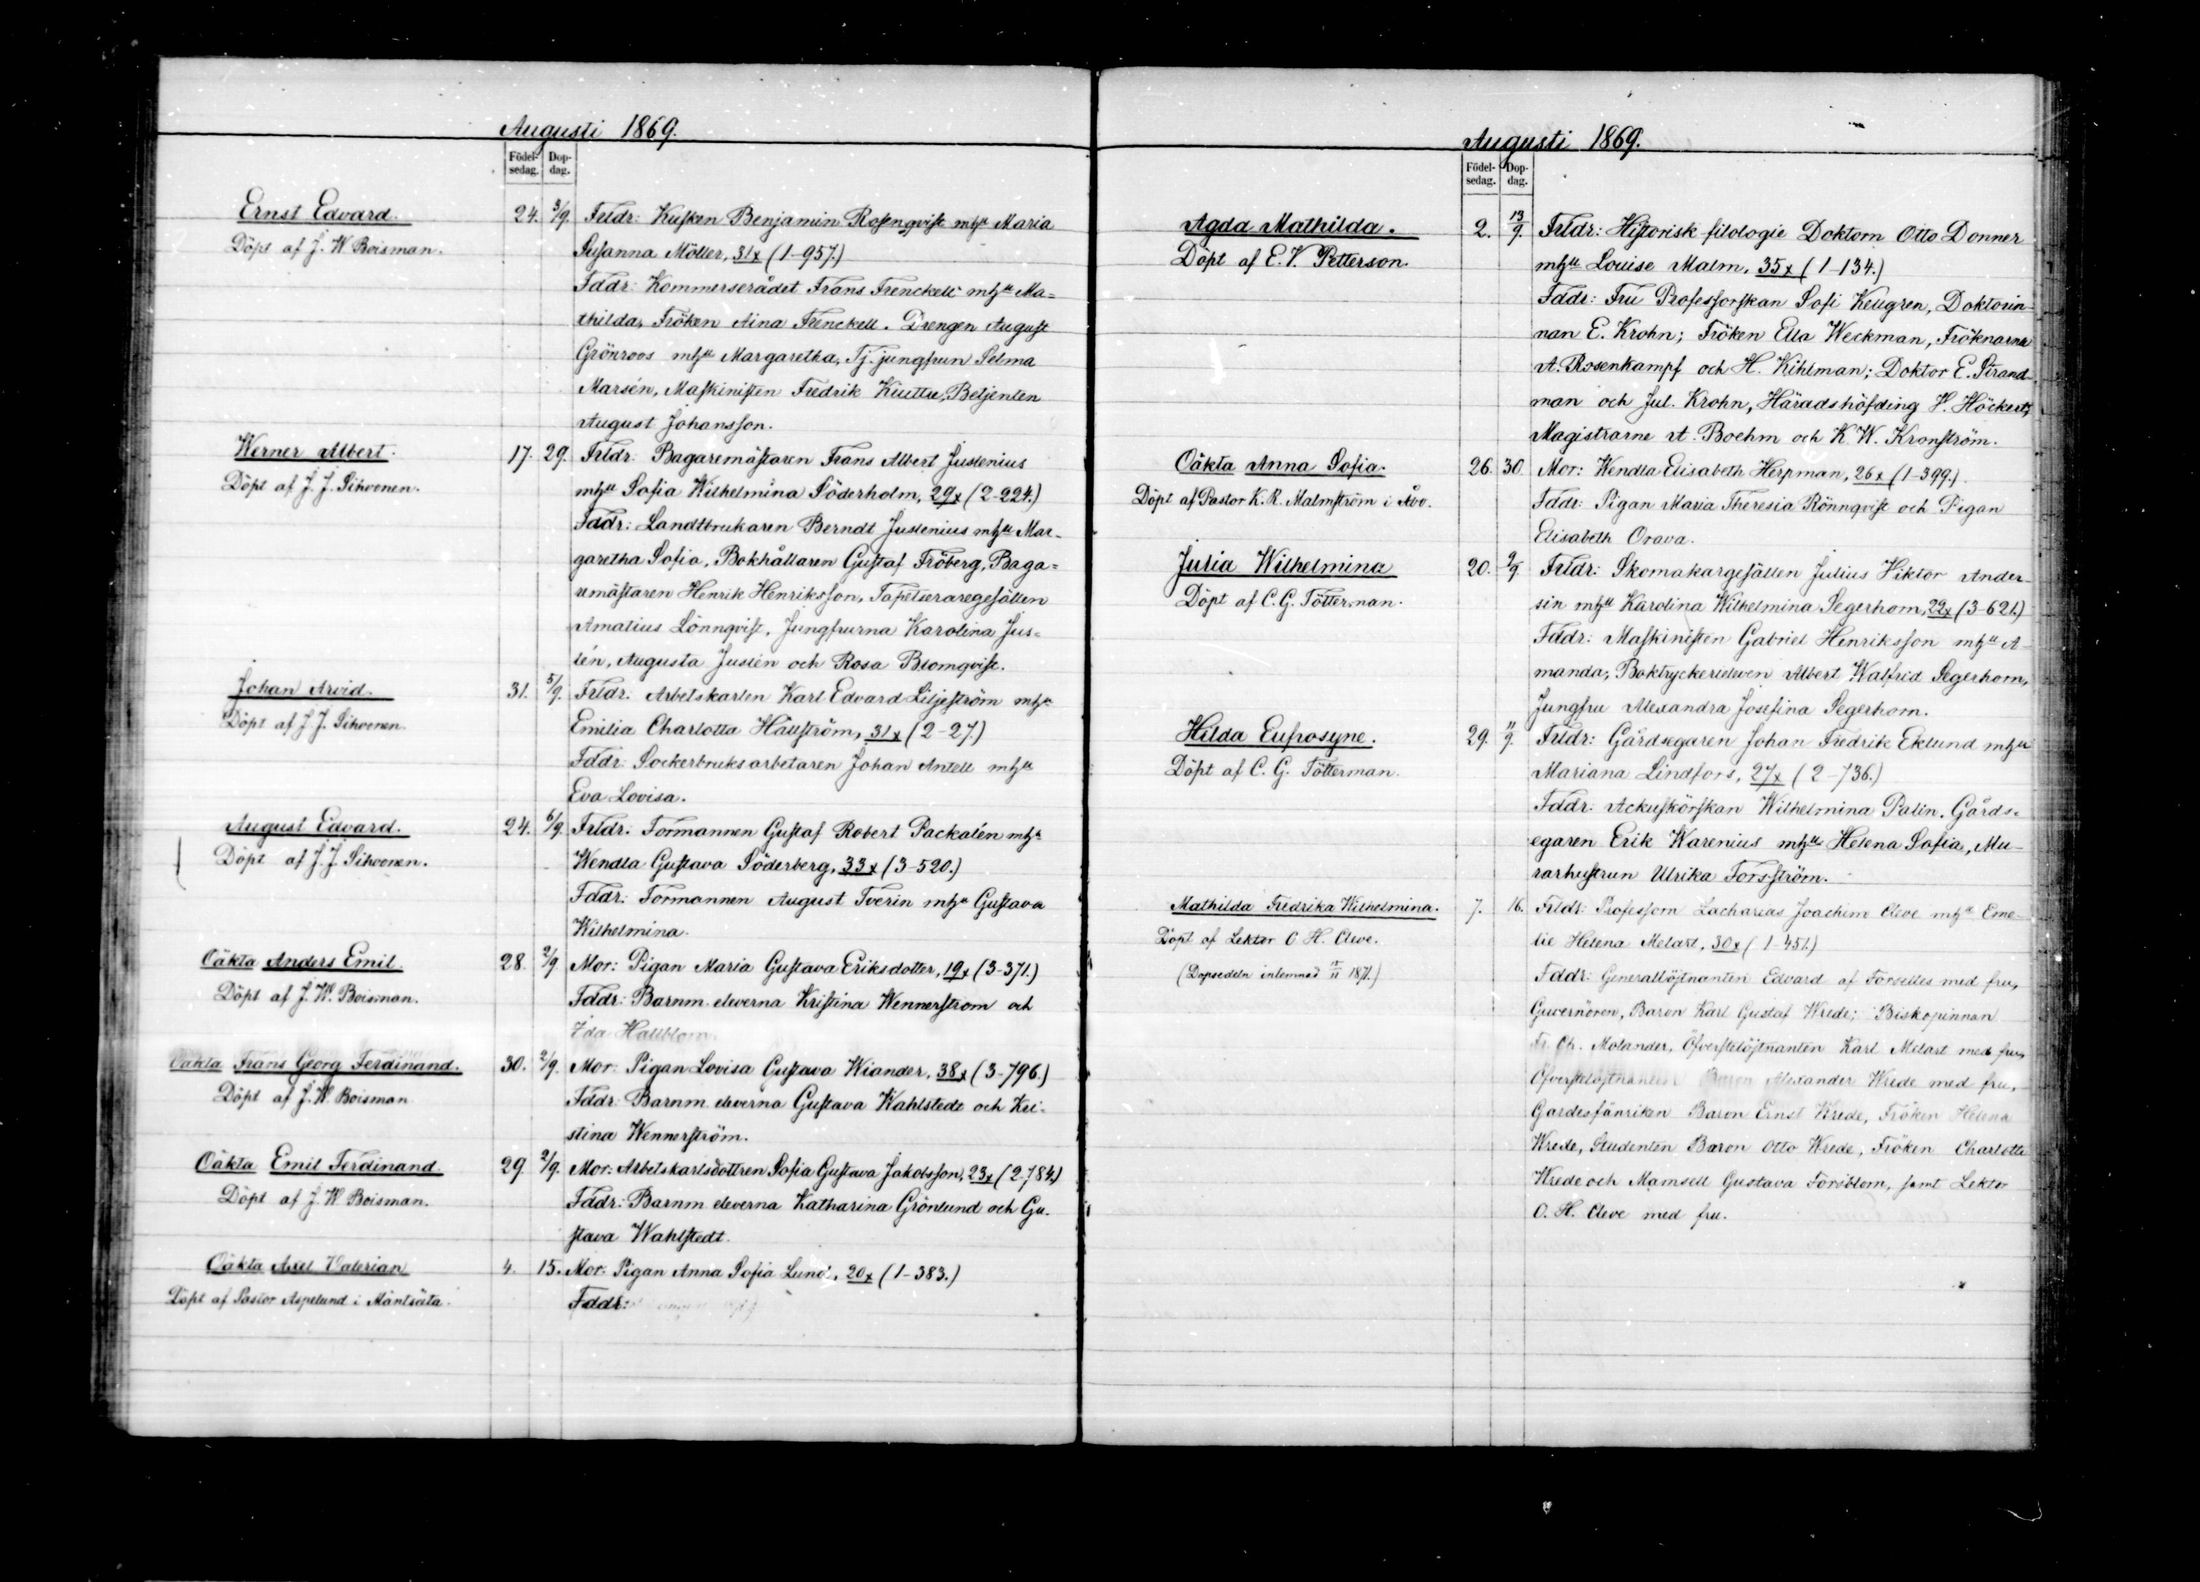 Augusti 1869.
Födel-
sedag.
Dop-
dag.
Ernst Edvard.
Döpt af J. W. Boisman.
24. 3/9. Frldr: Kusken Benjamin Rosenqvist mhu Maria
Susanna Möller, 31x (1-957.)
Fddr: Kommerserådet Frans Frenckell mhu Ma=
thilda, Fröken Aina Frenckell. Drengen August
Grönroos mhu Margaretha, Tj. jungfrun Selma
Marsén, Maskinisten Fredrik Kiuttu, Betjenten
August Johansson.
Werner Albert.
Döpt af J. J. Sihvonen.
17. 29. Frldr: Bagaremästaren Frans Albert Juslenius
mhu Sofia Wilhelmina Söderholm, 29x (2-224.)
Fddr: Landtbrukaren Berndt Juslenius mhu Mar-
garetha Sofia, Bokhållaren Gustaf Fröberg, Baga=
remästaren Henrik Henriksson, Tapetseraregesällen
Amatius Lönnqvist, Jungfrurna Karolina Jus=
lén, Augusta Juslén och Rosa Blomqvist.
Johan Arvid.
Döpt af J. J. Sihvonen.
31. 5/9. Frldr: Arbetskarlen Karl Edvard Liljeström mhu
Emilia Charlotta Hällström, 31x (2-27.)
Fddr: Sockerbruksarbetaren Johan Antell mhu
Eva Lovisa.
August Edvard.
Döpt af J. J. Sihvonen.
24. 6/9. Frldr: Formannen Gustaf Robert Packalén mhu
Wendla Gustava Söderberg, 33x (3-520.)
Fddr: Formannen August Tverin mhu Gustava
Wilhelmina.
Oäkta Anders Emil.
Döpt af J. W. Boisman.
28. 2/9. Mor: Pigan Maria Gustava Eriksdotter, 19x (3-371.)
Fddr: Barnm. eleverna Kristina Wennerström och
Ida Hallblom.
Oäkta Frans Georg Ferdinand.
Döpt af J. W. Boisman
30. 2/9. Mor: Pigan Lovisa Gustava Wiander, 38x (3-796.)
Fddr: Barnm. eleverna Gustava Wahlstedt och Kri-
stina Wennerström.
Oäkta Emil Ferdinand.
Döpt af J. W. Boisman.
29. 2/9. Mor: Arbetskarlsdottren Sofia Gustava Jakobsson, 23x (2-784.)
Fddr: Barnm. eleverna Katharina Grönlund och Gu-
stava Wahlstedt.
Oäkta Axel Valerian
Döpt af Pastor Aspelund i Mäntsälä.
4. 15. Mor: Pigan Anna Sofia Lund, 20x (1-383.)
Fddr:
Augusti 1869.
Födel-
sedag.
Dop-
dag.
Agda Mathilda.
Döpt af E. V. Petterson.
2. 13/9. Frldr: Historisk filologie Doktorn Otto Donner
mhu Louise Malm, 35x (1-134.)
Fddr: Fru Professorskan Sofi Kellgren, Doktorin-
nan E. Krohn; Fröken Ella Weckman, Fröknarna
A. Rosenkampf och H. Kihlman; Doktor E. Strand-
man och Jul. Krohn, Häradshöfding V. Höckert,
Magistrarne A. Boehm och K. W. Kronström.
Oäkta Anna Sofia.
Döpt af Pastor K. R. Malmström i Åbo.
26. 30. Mor: Wendla Elisabeth Herpman, 26x (1-399.)
Fddr: Pigan Maria Theresia Rönnqvist och Pigan
Elisabeth Orava.
Julia Wilhelmina
Döpt af C. G. Tötterman.
20. 9/9. Frldr: Skomakargesällen Julius Viktor Ander-
sin mhu Karolina Wilhelmina Segerhom, 22x (3-621.)
Fddr: Maskinisten Gabriel Henriksson mhu A-
manda; Boktryckerieleven Albert Walfrid Segerhom,
Jungfru Alexandra Josefina Segerhom.
Hilda Eufrosyne.
Döpt af C. G. Tötterman.
29. 11/9. Frldr: Gårdsegaren Johan Fredrik Eklund mhu
Mariana Lindfors, 27x (2-736.)
Fddr: Ackuskörskan Wilhelmina Palin, Gårds-
egaren Erik Warenius mhu Helena Sofia, Mu-
rarhustrun Ulrika Forsström.
Mathilda Fredrika Wilhelmina.
Döpt af Lektor O. H. Cleve.
(Dopsedeln inlemnad 15/11 1871.)
7. 16. Frldr: Professorn Zacharias Joachim Cleve mhu Eme-
lie Helena Melart, 30x (1-451.)
Fddr: Generallöjtnanten Edvard af Forselles med fru,
Guvernören, Baron Karl Gustaf Wrede; Biskopinnan
Fr. Ch. Molander, Öfverstelöjtnanten Karl Melart med fru,
Öfverstelöjtnanten Baron Alexander Wrede med fru,
Gardesfänriken Baron Ernst Wrede, Fröken Helena
Wrede, Studenten Baron Otto Wrede, Fröken Charlotte
Wrede och Mamsell Gustava Forsblom, samt Lektor
O. H. Cleve med fru.